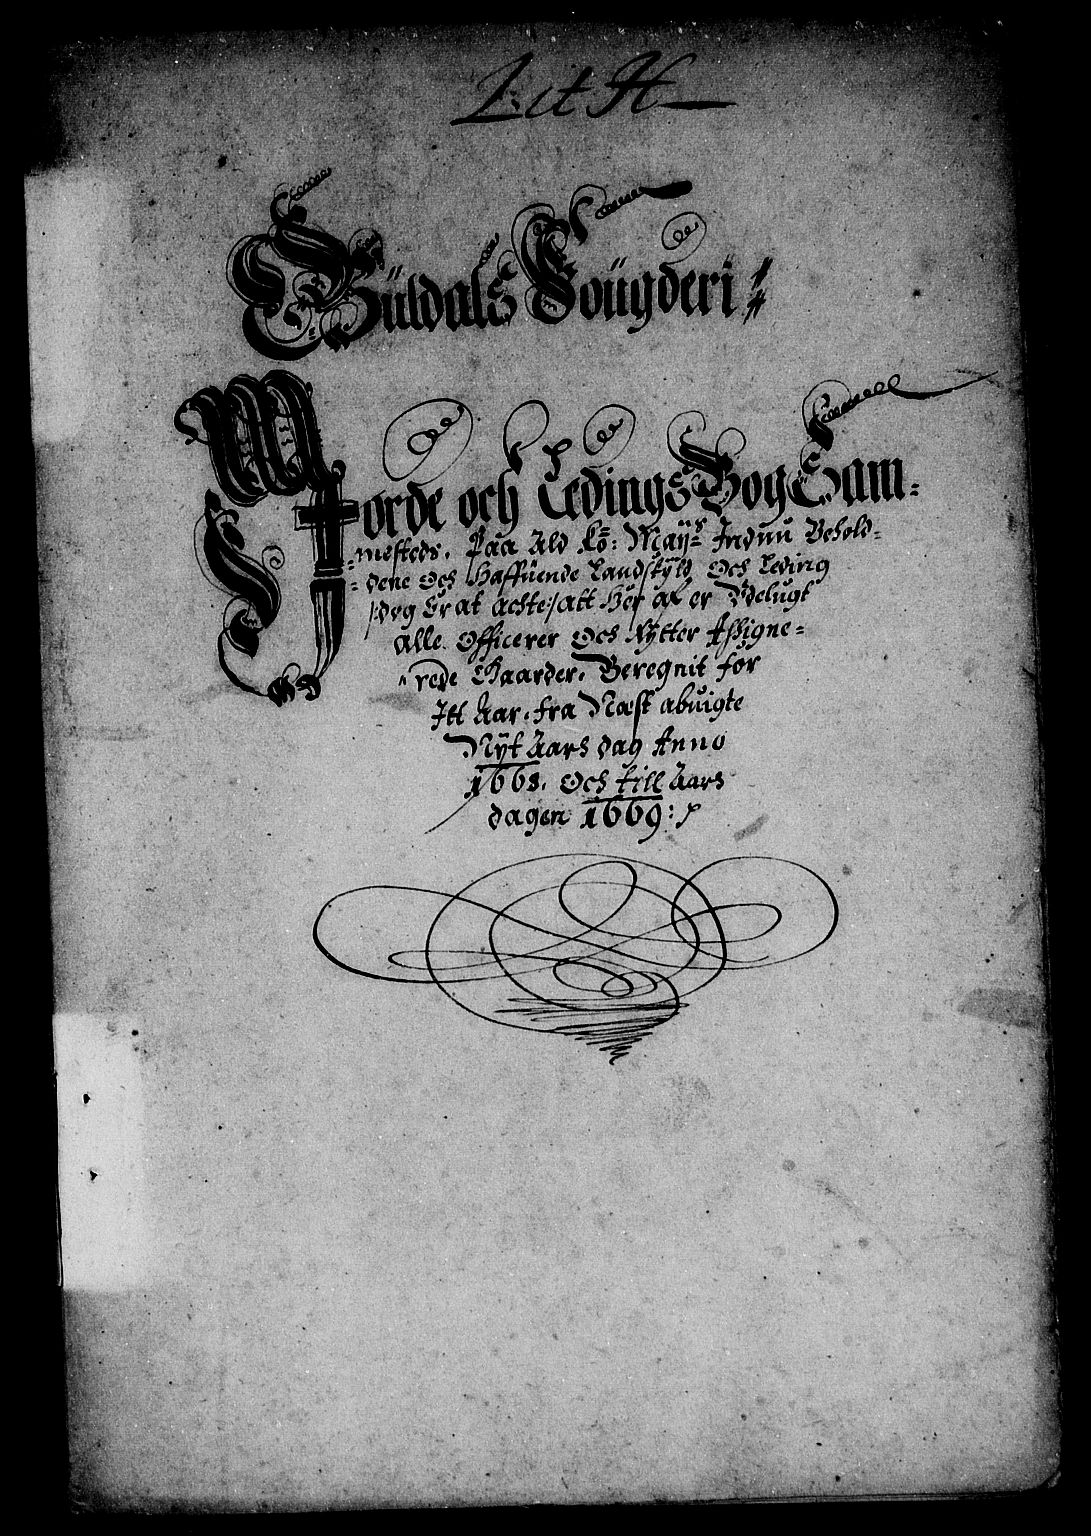 Lit H
Güldals Foügderi
Jorde och Ledings Bog Sam=
=mesteds. Paa Ald Ko: Mayts Induu Behold=
=dene Och Haffüende Landskÿld Och Leding
/:dog Er at achte:/ att Her af er Velugt
alle Officerer Och Rÿtter Assigne=
rede Gaarder. Beregnit for
Itt Aar. fra Næst abuigte
Nÿt Aars dag Anno
1668. Och till Aars
dagen 1669: